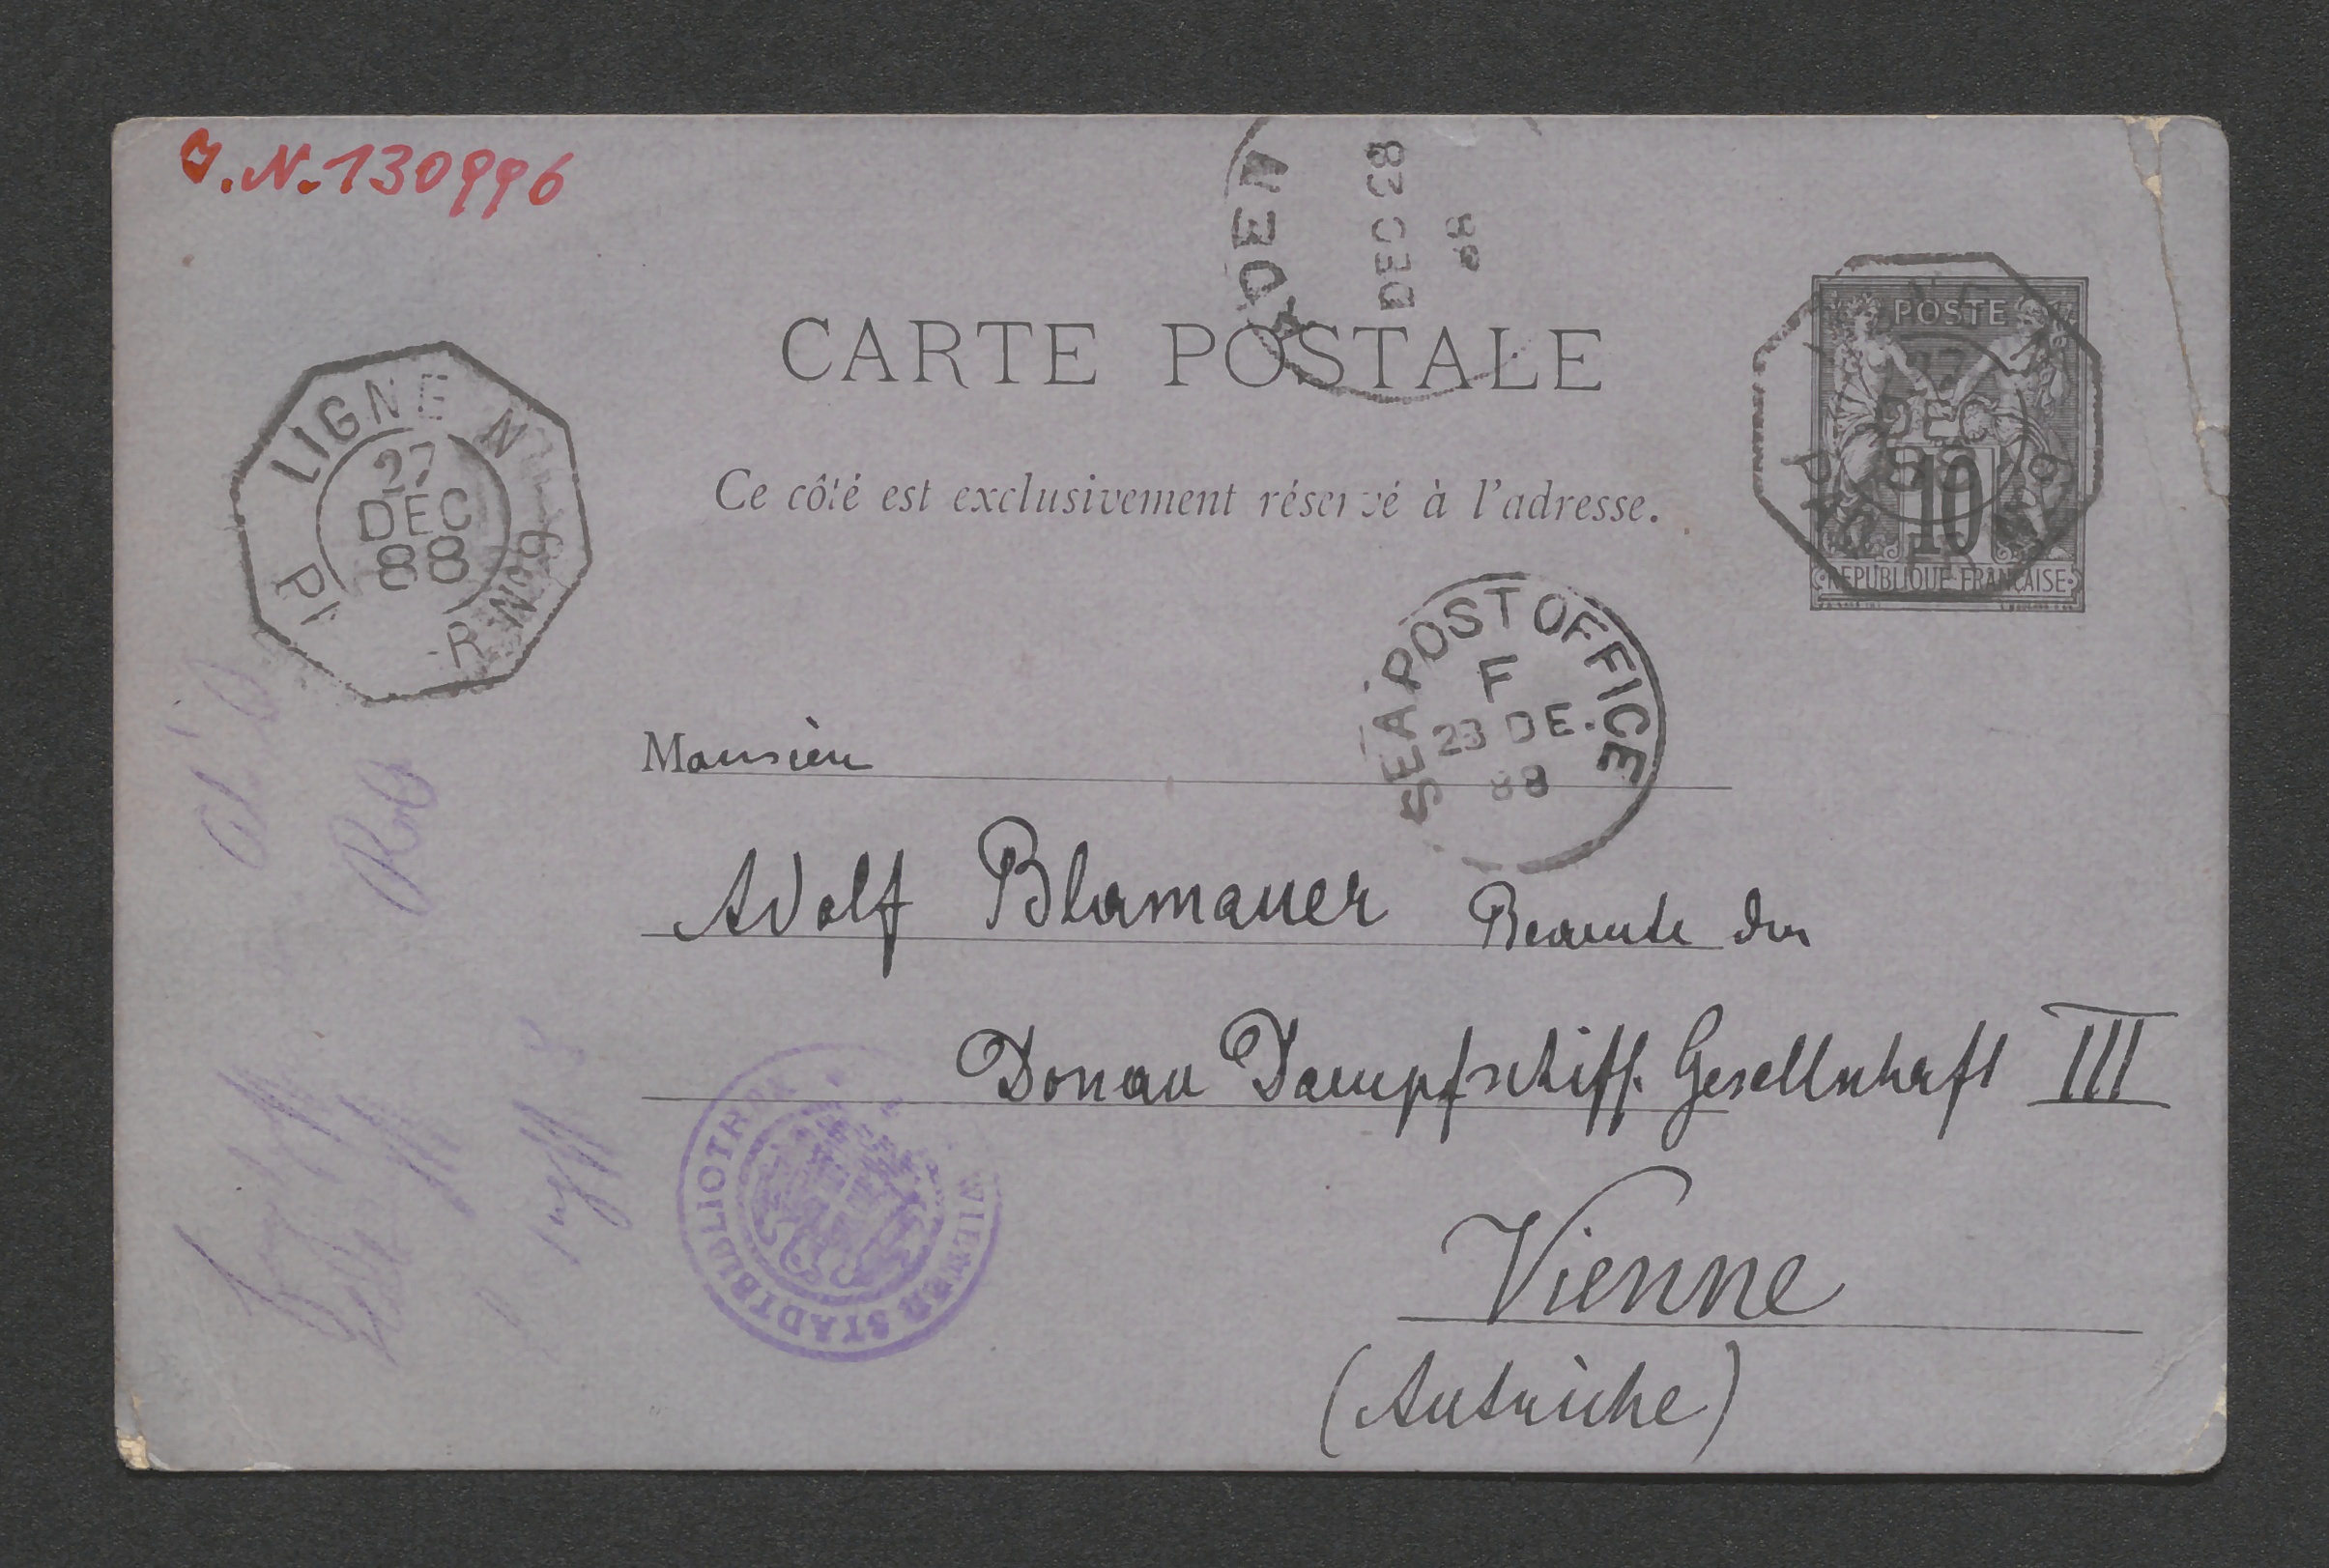 J.N.130996
ADEN
DEC 28
88
CARTE POSTALE
Ce côté est exclusivement réservé à l'adresse.
POSTE
10
REPUBLIQUE FRANÇAISE
DEC
88
LIGNE N
27
DEC
88
R Nº 9
SEA POST OFFICE
F
23 DE.
88
Monsieur
Adolf Blamauer Beamte der
Donau Dampfschiff. Gesellschaft III
Vienne
(Autriche)
WIENER STADTBIBLIOTHEK